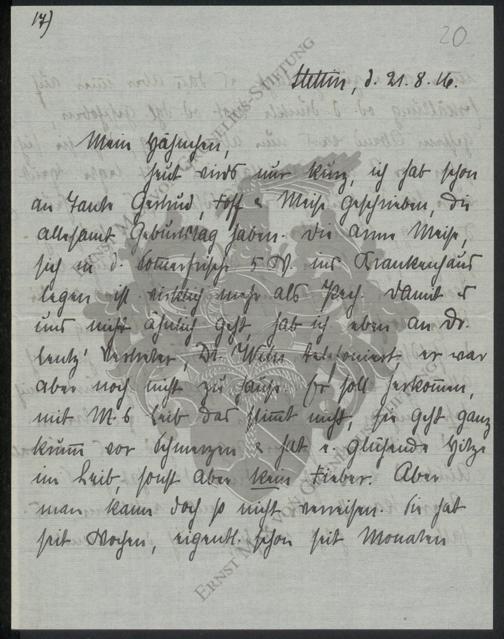 17)
20.
Stettin, d. 21.8.16.
Mein Hähnchen,
heut wirds nur kurz, ich hab schon
an Tante Gertrud, & Meise geschrieben, die
allesamt Geburtstag haben. Die arme Meise,
sich in d. Sommerfrische 5 W. ins Krankenhaus
legen ist wirklich mehr als Pech. Damit es
uns nicht ähnlich geht hab ich eben an Dr.
Lentz' Vertreter, Dr. telefoniert, er war
aber noch nicht zu Hause. Er soll herkommen,
mit M.s Leib das stimmt nicht, sie geht ganz
krumm vor Schmerzen & hat e. glühende Hitze
im Leib, sonst aber kein Fieber. Aber
man kann doch so nicht verreisen. Sie hat
seit Wochen, eigentl. schon seit Monaten
ERNST MAX VON GRUNELIUS-STIFTUNG
ERNST MAX VON